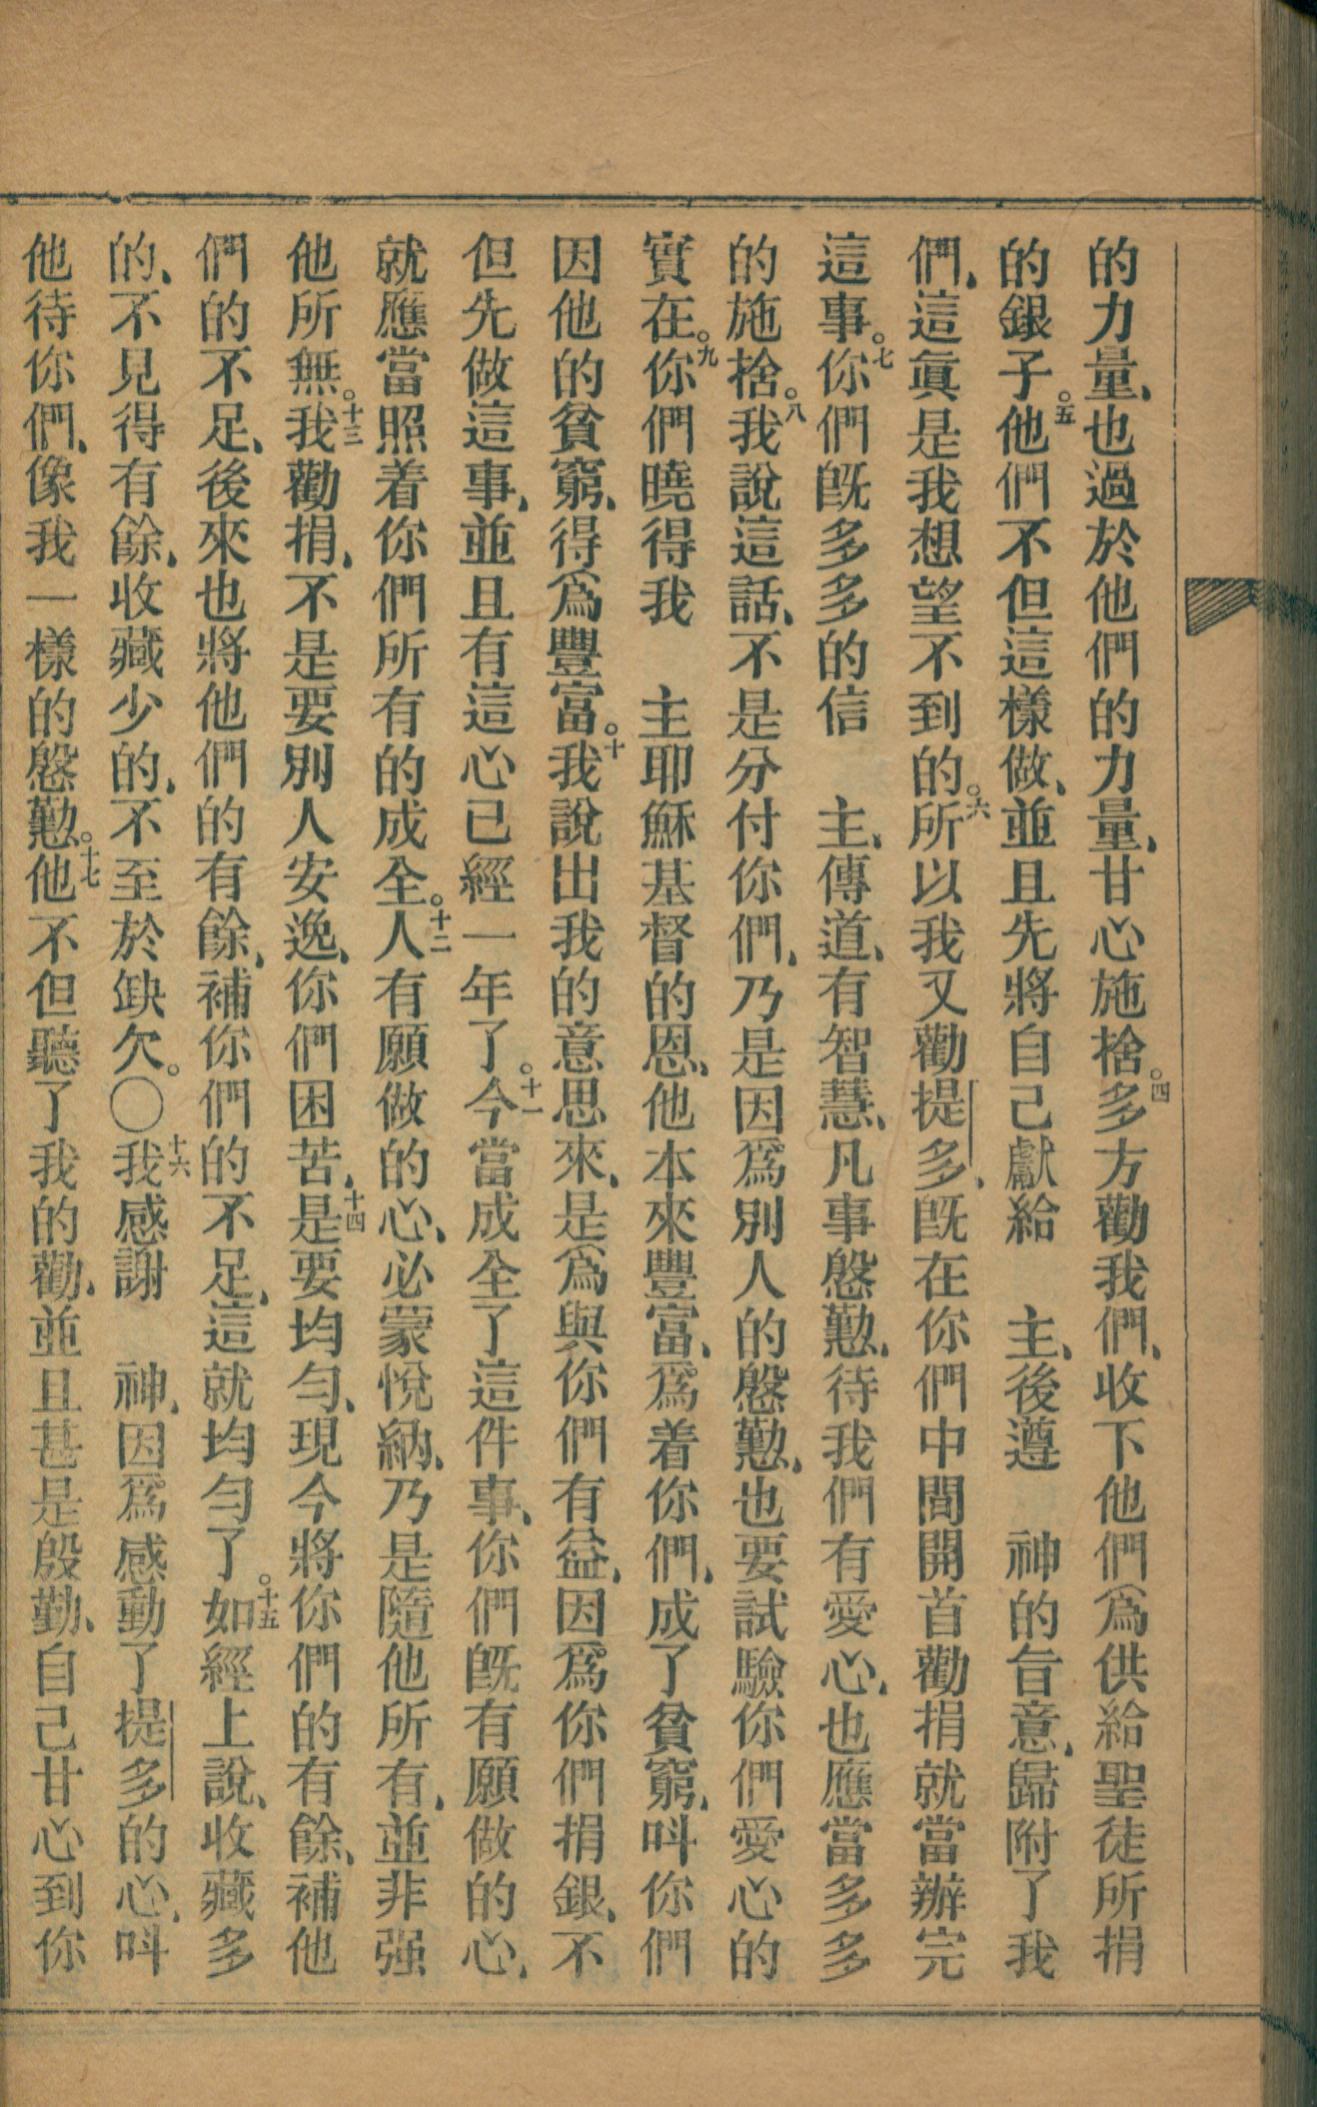 的力量、也過於他們的力量、甘心施捨。四多方勸我們、收下他們爲供給聖徒所捐
的銀子。五他們不但這樣做、並且先將自己獻給　主、後遵　神的旨意、歸附了我
們、這眞是我想望不到的。六所以我又勸提多、旣在你們中間開首勸捐就當辦完
這事。七你們旣多多的信　主、傳道、有智慧、凡事慇懃、待我們有愛心、也應當多多
的施捨。八我說這話、不是分付你們、乃是因爲別人的慇懃、也要試驗你們愛心的
實在。九你們曉得我　主耶穌基督的恩、他本來豐富、爲着你們、成了貧窮、呌你們
因他的貧窮、得爲豐富。十我說出我的意思來、是爲與你們有益、因爲你們捐銀、不
但先做這事、並且有這心已經一年了。十一今當成全了這件事、你們旣有願做的心、
就應當照着你們所有的成全。十二人有願做的心、必蒙悅納、乃是隨他所有、並非强
他所無。十三我勸捐、不是要別人安逸、你們困苦、十四是要均勻、現今將你們的有餘、補他
們的不足、後來也將他們的有餘、補你們的不足、這就均勻了。十五如經上說、收藏多
的、不見得有餘、收藏少的、不至於缺欠。〇十六我感謝　神、因爲感動了提多的心、呌
他待你們、像我一樣的慇懃。十七他不但聽了我的勸、並且甚是殷勤、自己甘心到你